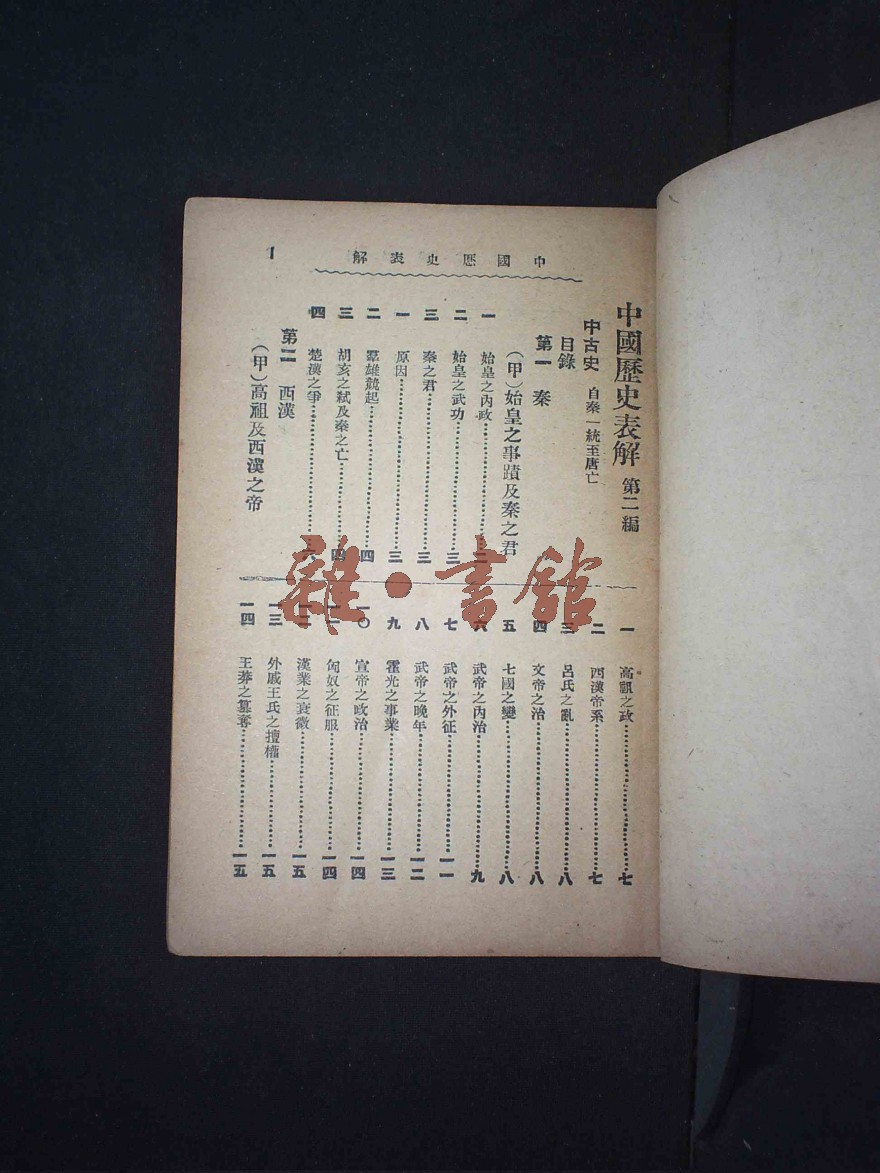 中國歷史表解
1
中國歷史表解 第二編
中古史 自秦一統至唐亡
目錄
第一 秦
（甲）始皇之事蹟及秦之君
一 始皇之內政 二
二 始皇之武功 三
三 秦之君 三
一 原因 三
二 羣雄競起 四
三 胡亥之弒及秦之亡 四
四 楚漢之爭 六
第二 西漢
（甲）高祖及西漢之帝
一 高祖之政 七
二 西漢帝系 七
三 呂氏之亂 八
四 文帝之治 八
五 七國之變 八
六 武帝之內治 九
七 武帝之外征 一一
八 武帝之晚年 一二
九 霍光之事業 一三
一〇 宣帝之政治 一四
一一 匈奴之征服 一四
一二 漢業之衰微 一五
一三 外戚王氏之擅權 一五
一四 王莽之篡奪 一五
雜·書館